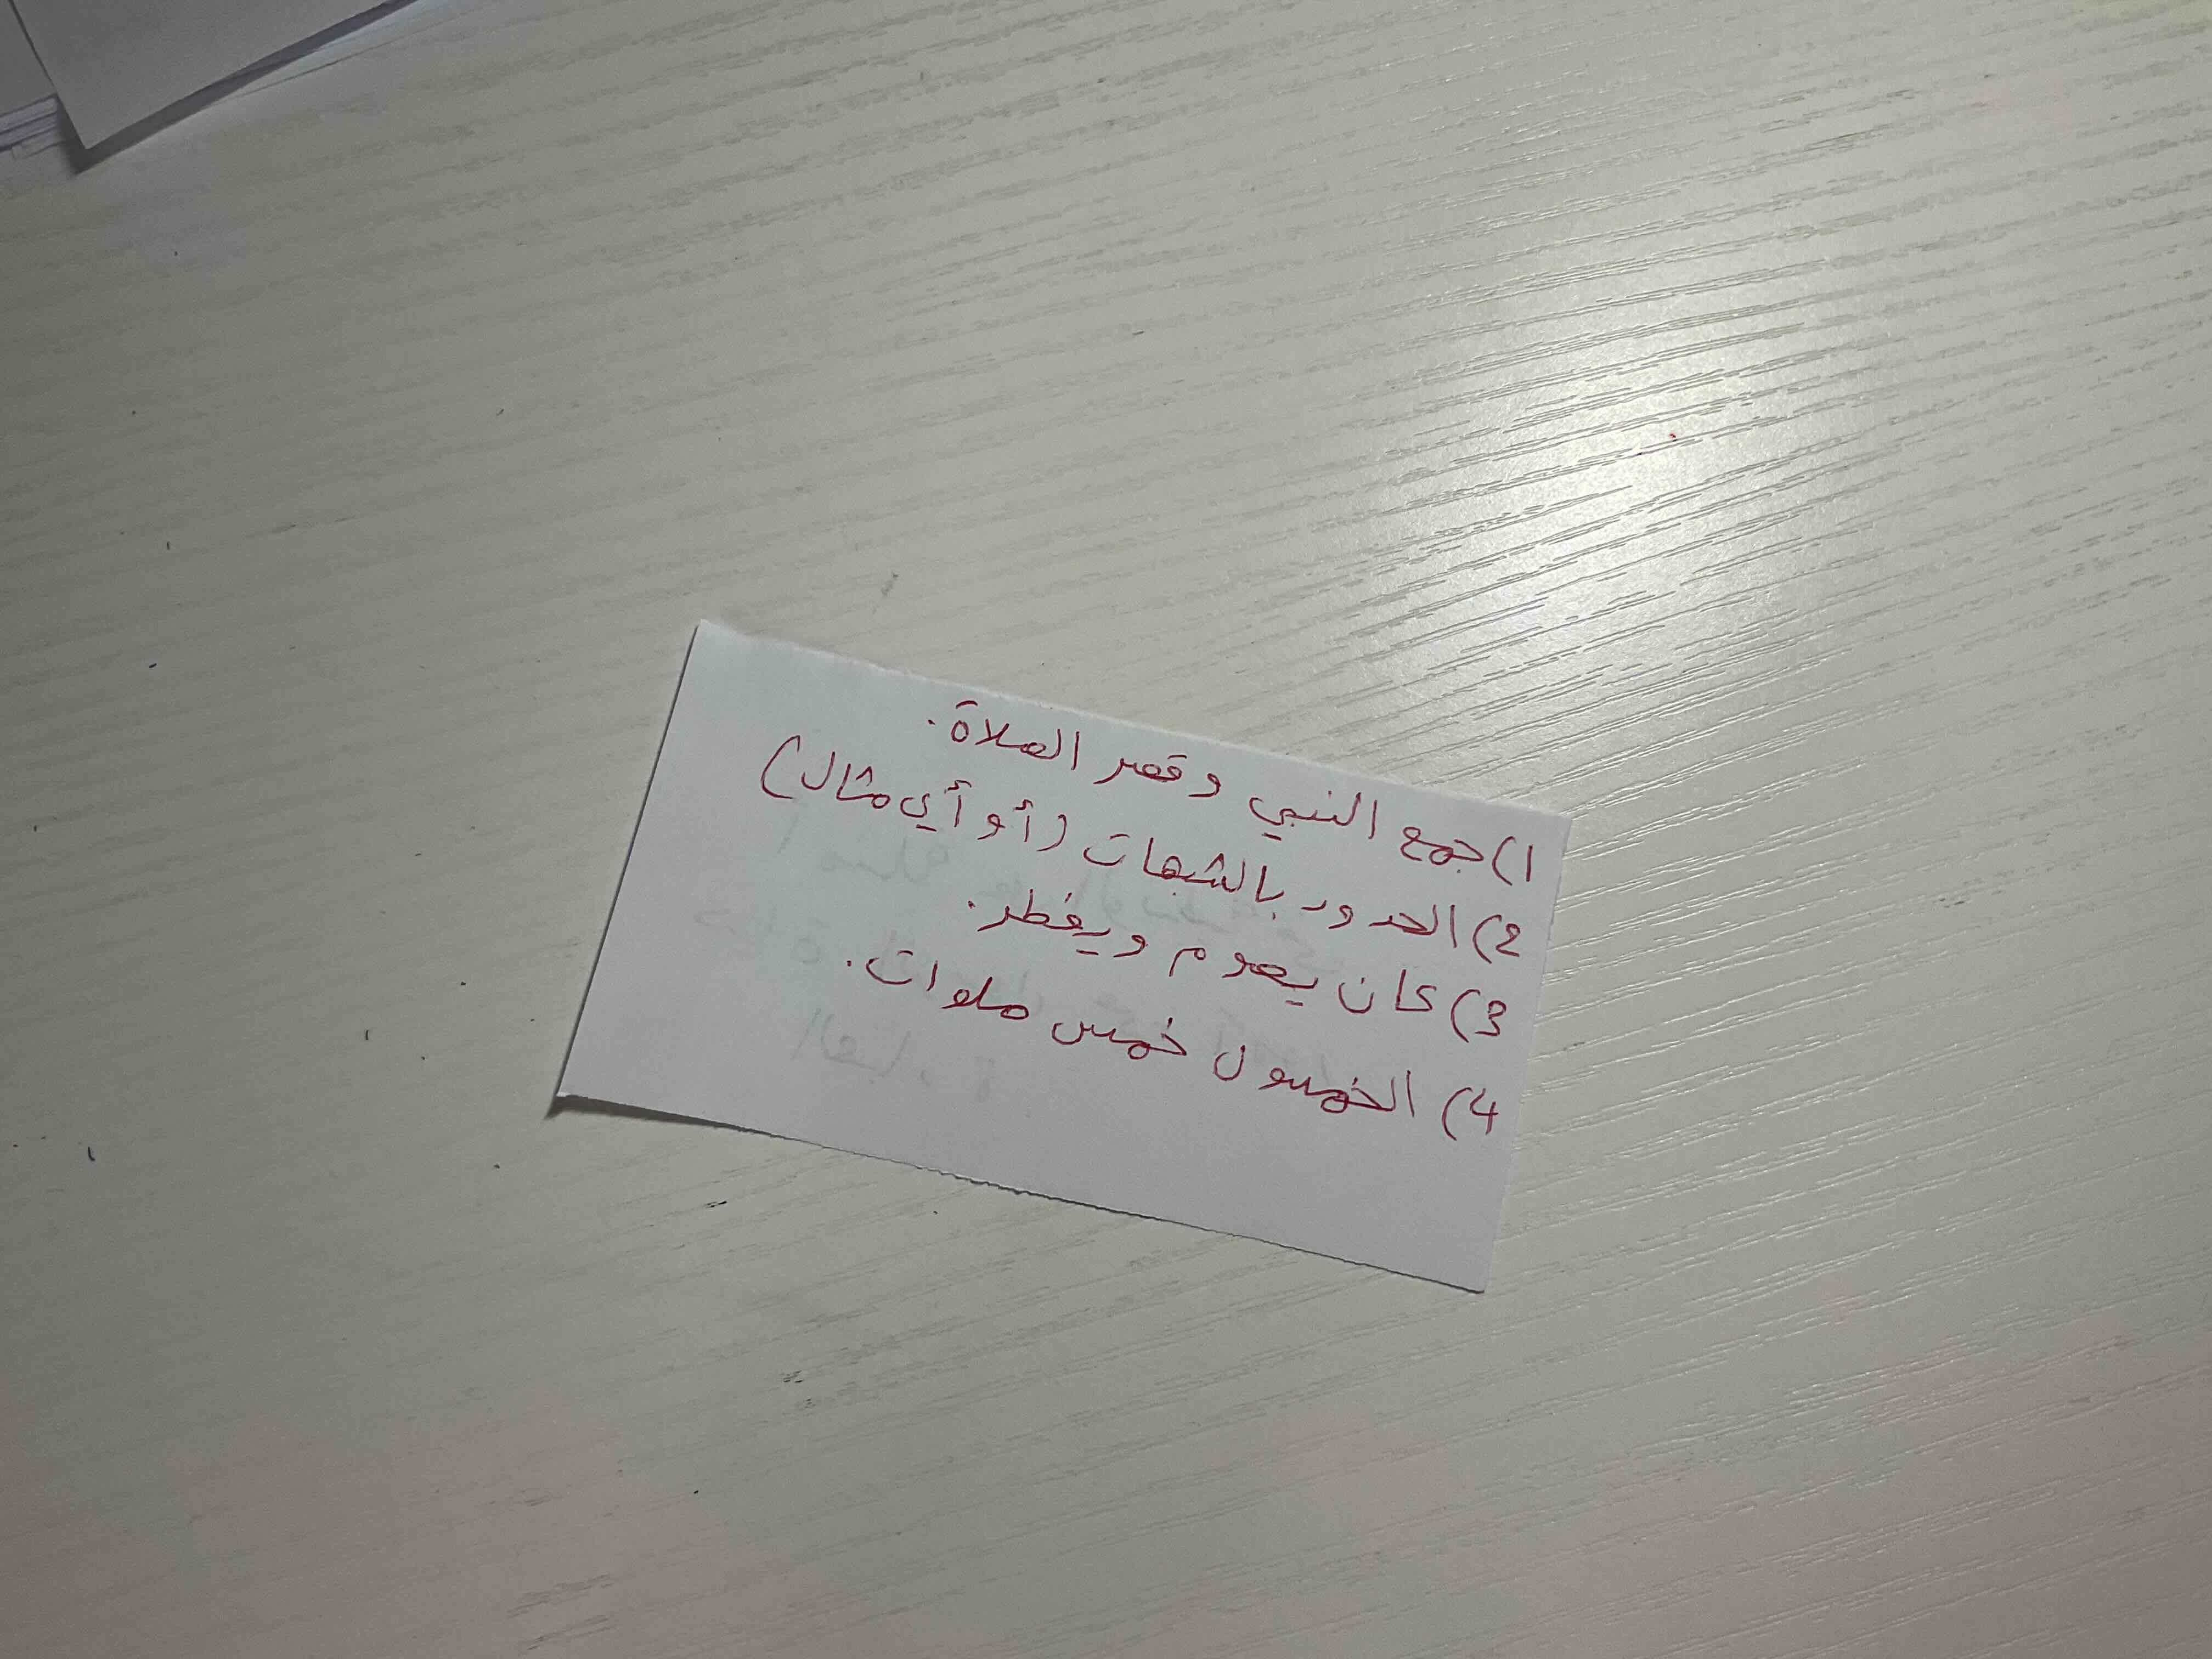 1) جمع النبي وقصر الصلاة.
2) الحدود بالشبهات (أو أي مثال)
3) كان يصوم ويفطر.
4) الخمسون خمس صلوات.